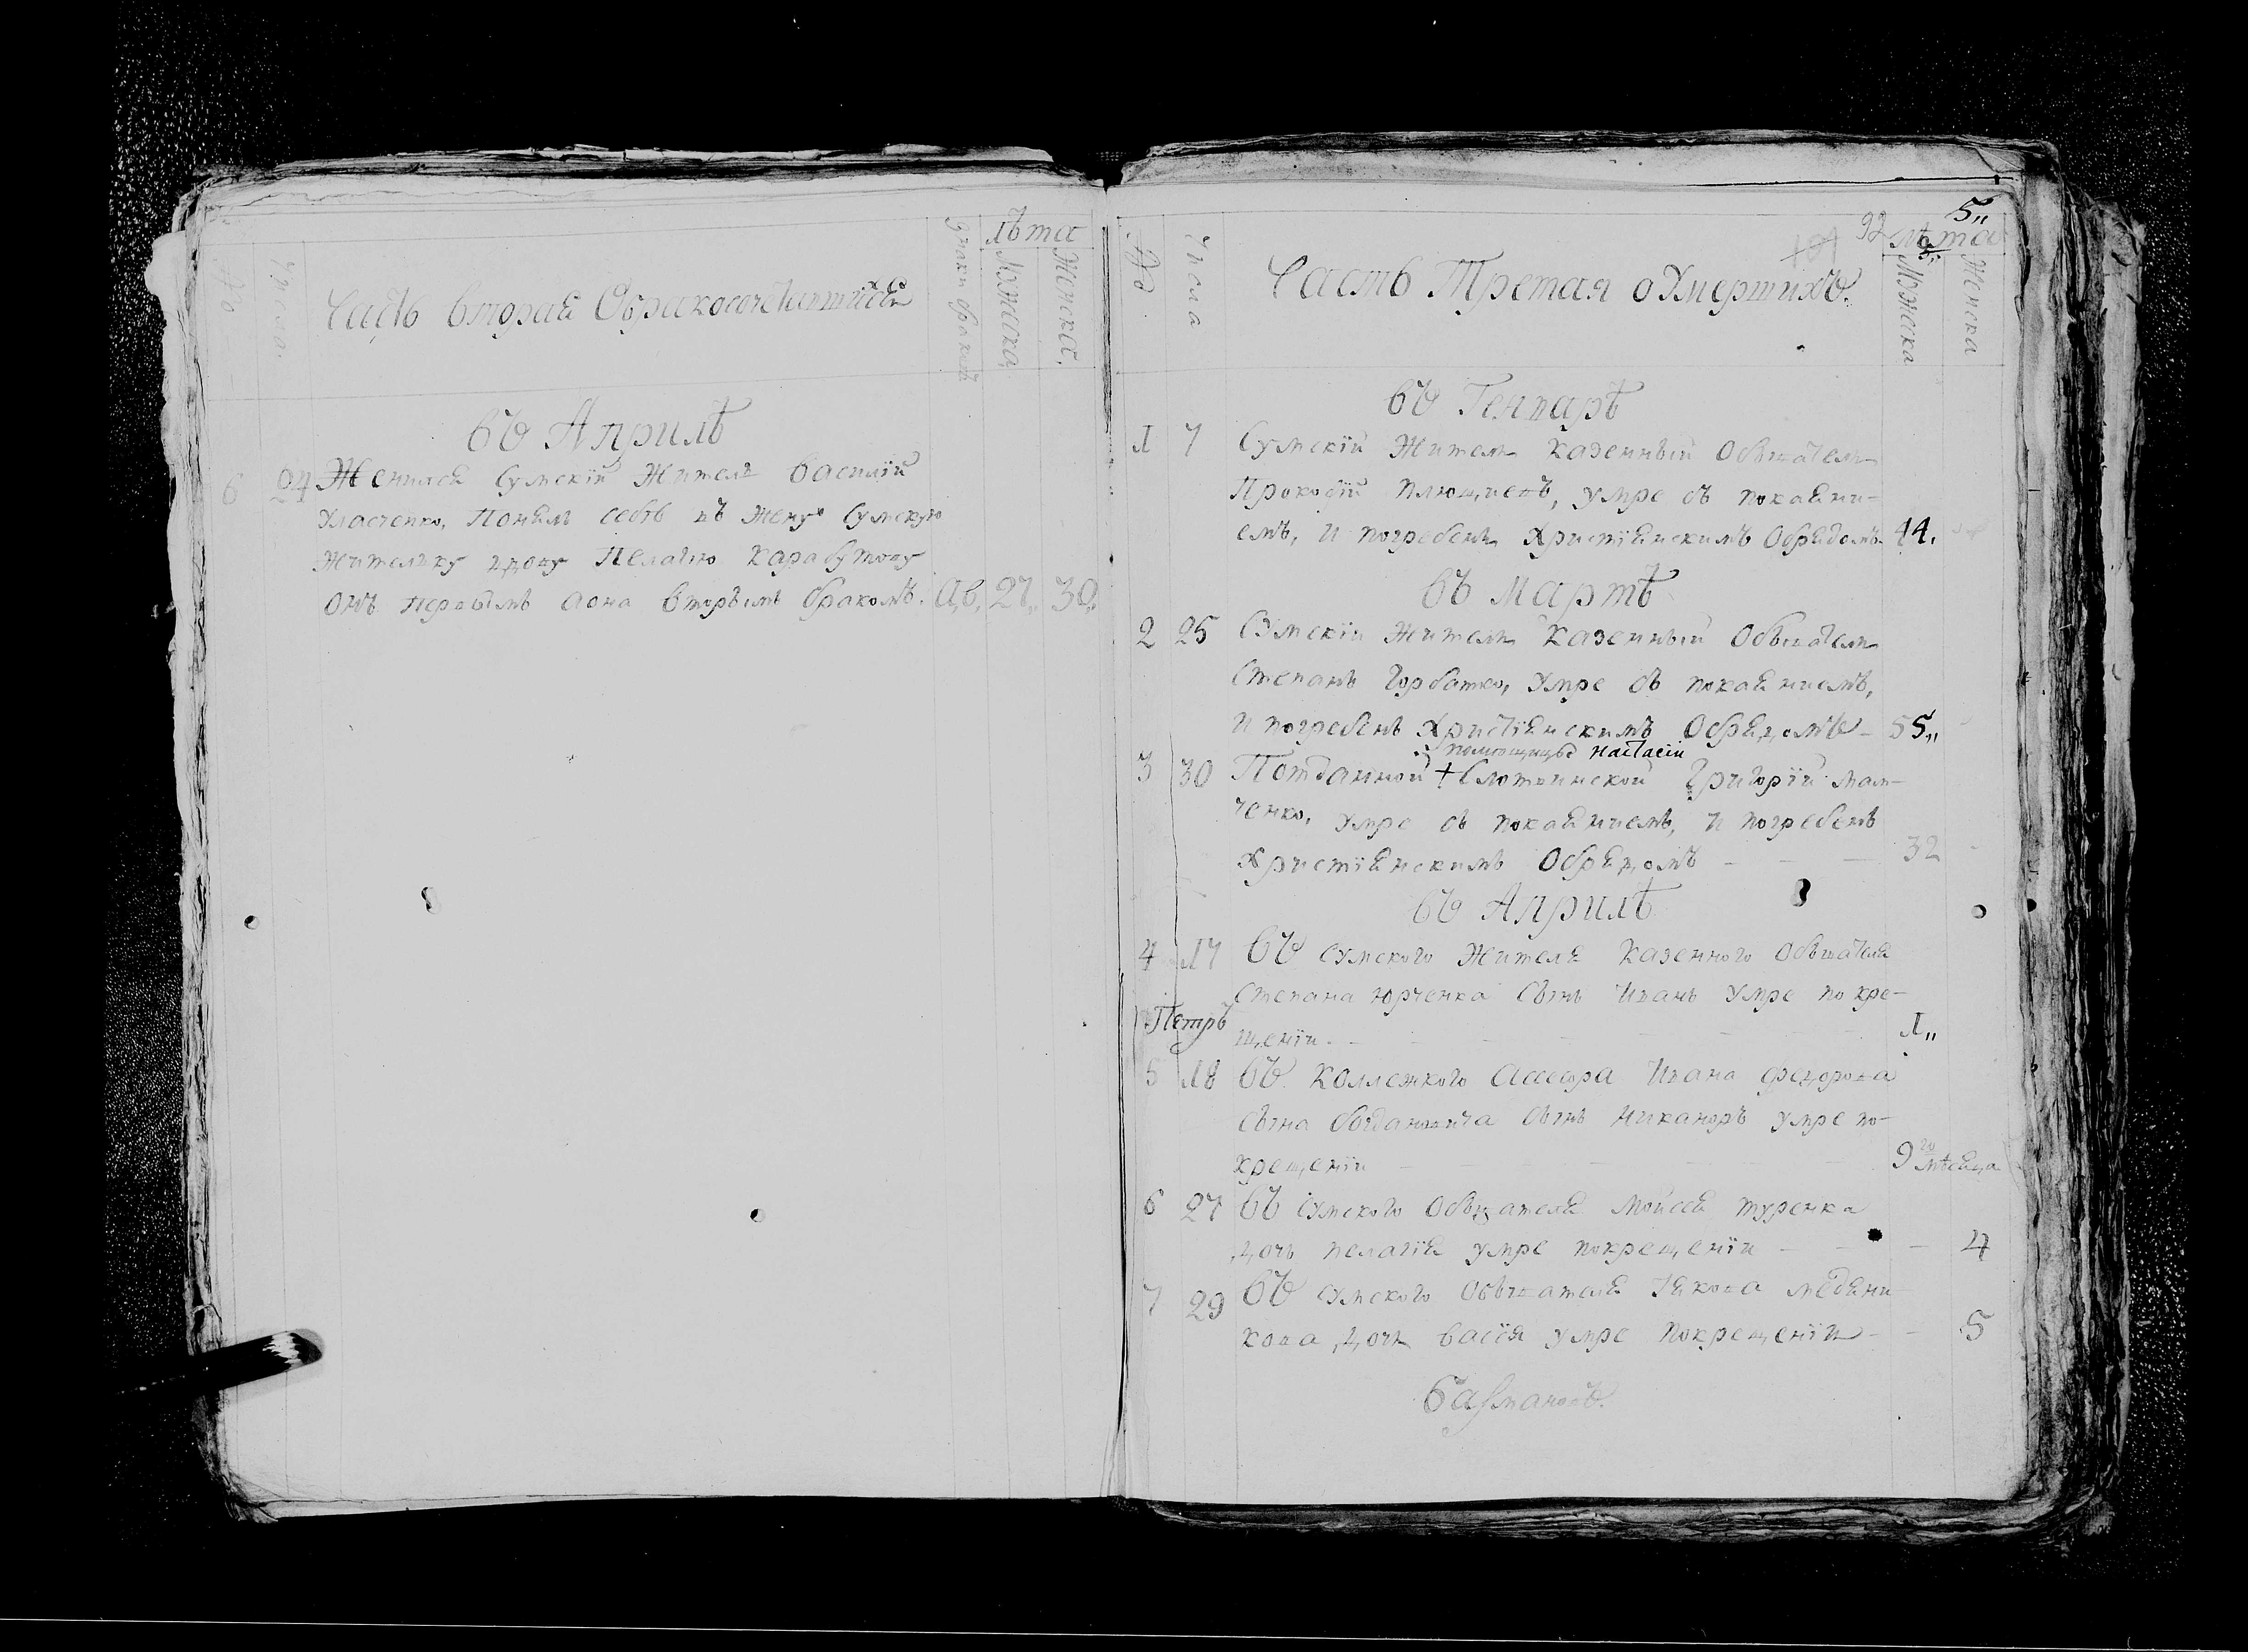 №
Числа.
Часть вторая Обракосочетавшихся
Знаки браковъ
Лѣта
Мужеска
Женска.
въ Априлѣ
6 24 Женился Сумскій Житель Василій
Понялъ себѣ въ жену Сумскую
жителку вдову Пелагію Карабутову
онъ первымъ аона вторымъ бракомъ. а,в, 27,, 30,,
5,,
92
№
Числа
Часть Третая оУмершихъ.
Лѣта
Мужеска
Женска
въ Генварѣ
1 7 Сумскій Житель Казенный Обыватель
Прокофій Плющиевъ, умре съ покаяни-
емъ, и погребенъ Християнскимъ Обрядомъ 44.
въ Мартѣ
2 25 Сумскій Житель Казенный Обыватель
Степанъ Горбатко, Умре съ покаяниемъ,
и погребенъ Християнскимъ Обрядомъ - 55,,
помѣщицы Настасіи
3 30 Потданной + Слотвинской Григорій Мам-
ченко, умре съ покаяниемъ, и погребенъ
Християнскимъ Обрядомъ - - - 32
въ Априлѣ
4 17 въ Сумского Жителя Казенного Обывателя
Степана Юрченка Сынъ Иванъ Умре по кре-
Петръ
щеніи. - 1,,
5 18 въ Коллежкого Ассесора Ивана Федорова
сына Богдановича Сынъ Никаноръ умре по-
крещеніи - 9го мѣсяца
6 27 въ Сумского Обывателя Мойсея Туренка
дочь Пелагія умре покрещеніи - - - 4
7 29 въ Сумского Обывателя Якова Медяни
кова дочь Васія умре покрещеніи - - 5